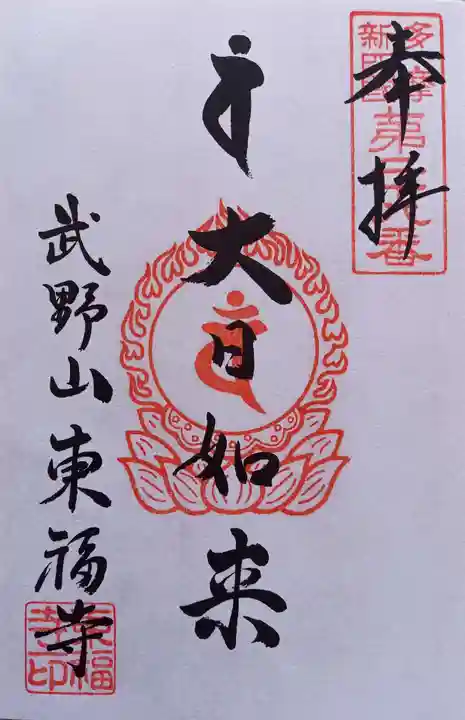 奉拝
多摩
新四國
大日如来
武野山東福寺
東福
寺印